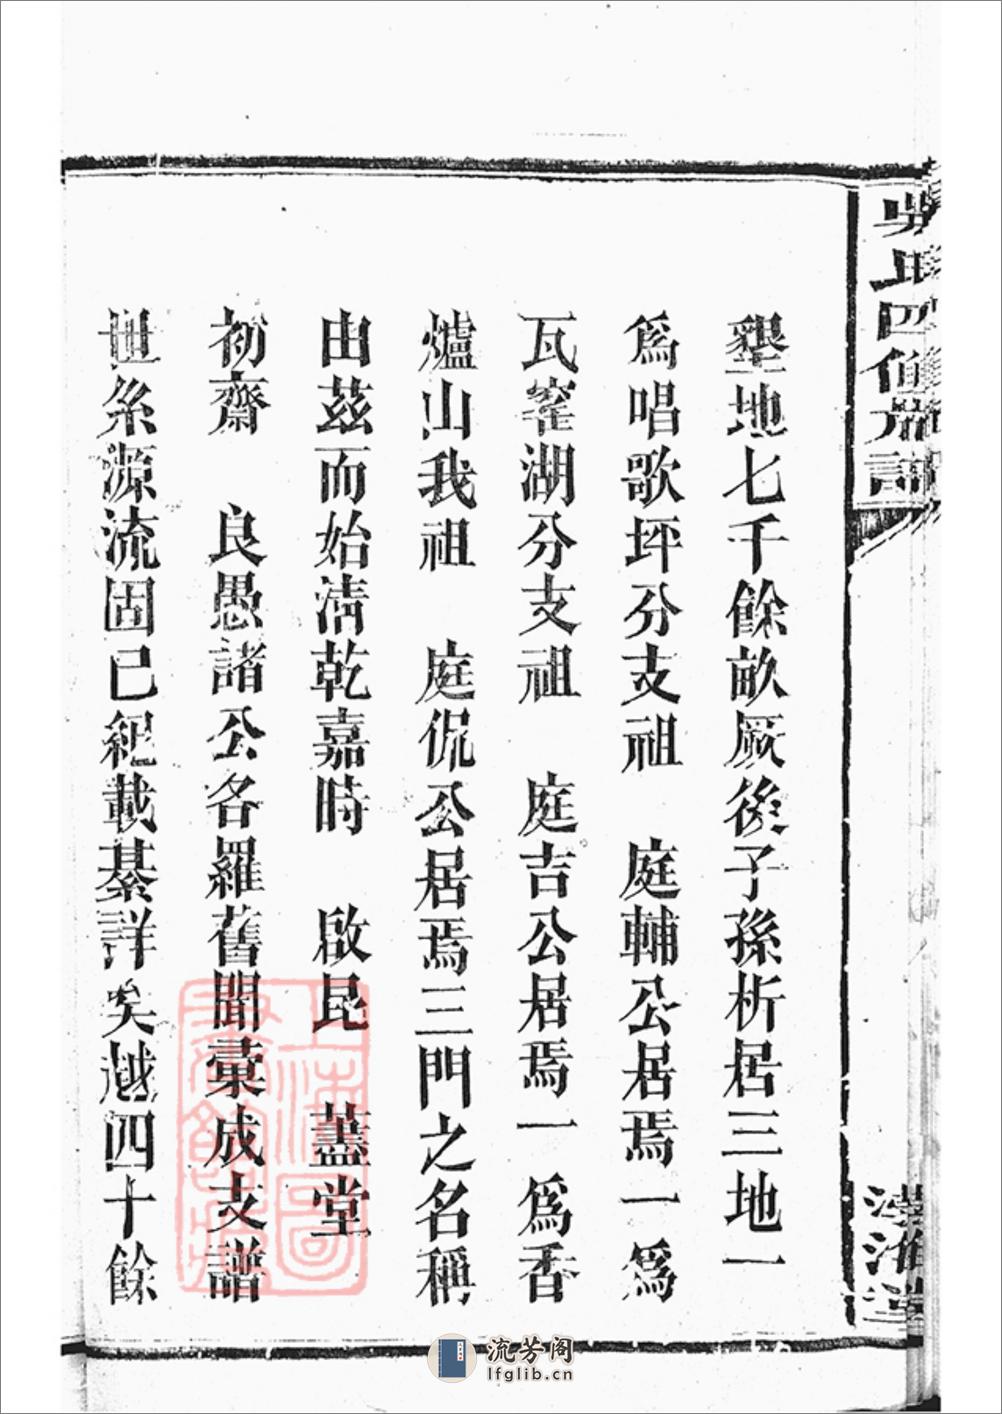 墾地七千餘畝厥後子孫析居三地一
爲唱歌坪分支祖 庭輔公居焉一爲
瓦窑湖分支祖 庭吉公居焉一爲香
爐山我祖 庭侃公居焉三門之名稱
由茲而始淸乾嘉時 啟昆 藎堂
初齋 良愚諸公各羅舊聞彙成支譜
世系源流固已紀載綦詳矣越四十餘
流芳阁
lfglib.cn